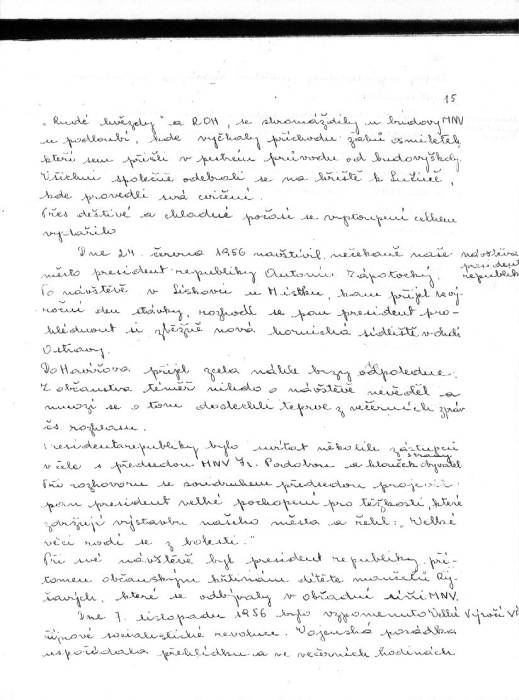 15
„Rudé hvězdy" a ROH, se shromáždily u budovy MNV
u podloubí, kde vyčkaly příchodu žáků osmiletek,
kteří sem přišli v pestrém průvodu od budovy školy.
Všichni společně odebrali se na hřiště k Lučině,
kde provedli svá cvičení.
Přes deštivé a chladné počasí se vystoupení celkem
vydařilo
Dne 24. června 1956 navštívil nečekaně naše
město president republiky Antonín Zápotocký.
návštěva
president
republiky
Po návštěvě v Liskovci u Místku, kam přijel
roční den stávky, rozhodl se pan president pro-
hlédnout si zběžně nová hornická sídliště v okolí
Ostravy.
Do Havířova přijel zcela náhle brzy odpoledne.
Z občanstva téměř nikdo o návštěvě nevěděl a
mnozí se o tom doslechli teprve z večerních zpráv
čs rozhlasu.
presidenta republiky bylo uvítat několik zástupců
strany
v čele s předsedou MNV Podobou a hlouček obyvatel
Při rozhovoru se soudruhem předsedou projevil
pan president velké pochopení pro těžkosti, které
zdržují výstavbu našeho města a řekl: „Velké
věci rodí se z bolesti."
Při své návštěvě byl president republiky pří-
tomen občanským křtinám dítěte manželů
které se odbývaly v obřadní síni MNV.
Dne 7. listopadu 1956 bylo vzpomenuto Velké
Výročí
říjnové socialistické revoluce. Vojenská posádka
uspořádala přehlídku a ve večerních hodinách